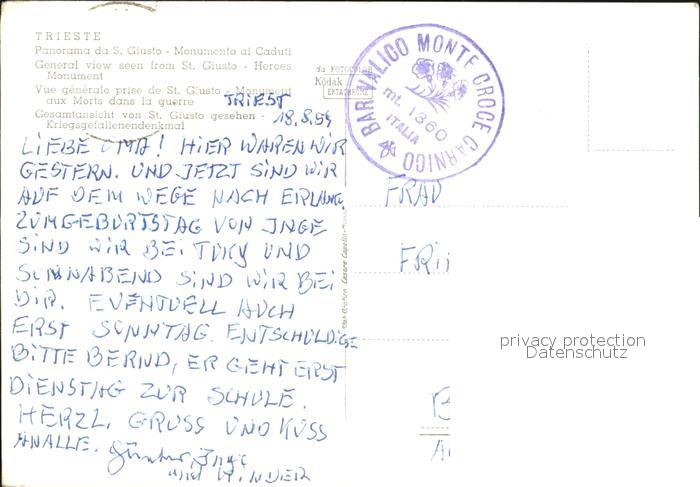 TRIESTE
Panorama da S. Giusto - Monumento ai Caduti
General view seen from St. Giusto - Heroes
Monument
Vue générale prise de St. Giusto - Monument
aux Morts dans la guerre
Gesamtansicht von St. Giusto gesehen -
Kriegsgefallenendenkmal
TRIEST
18.8.59
LIEBE OMA! HIER WAREN WIR
GESTERN. UND JETZT SIND WIR
AUF DEM WEGE NACH ERLANG.
ZUM GEBURTSTAG VON INGE
SIND WIR BEI TUKY UND
SONNABEND SIND WIR BEI
DIR. EVENTUELL AUCH
ERST SONNTAG. ENTSCHULDIGE
BITTE BERND, ER GEHT ERST
DIENSTAG ZUR SCHULE.
HERZL. GRUSS UND KUSS
AN ALLE. Günter, Inge
und KINDER
da FOTOCOLOR
Kodak
EKTACHROME
BAR VALICO MONTE CROCE CARNICO
mt. 1360
ITALIA
FRAU
privacy protection
Datenschutz